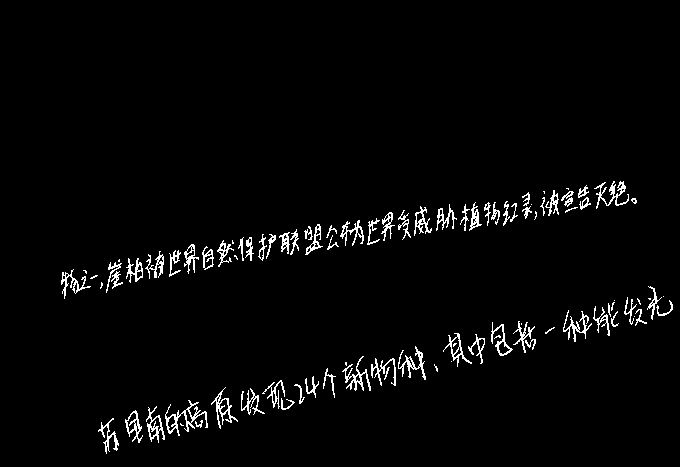 物之一,崖柏被世界自然保护联盟公布为世界受威胁植物红录,被宣告灭绝。
苏里南的高原发现24个新物种、其中包括一种能发光